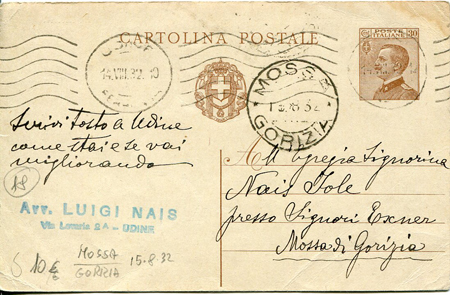 CARTOLINA POSTALE
POSTE ITALIANE 30
UDINE
14.VIII.32.
MOSSA
15.8 32
GORIZIA
Scrivi tosto a Udine
come stai e se vai
migliorando
18
Avv. LUIGI NAIS
Via Lovaria 2A - UDINE
All' Egregia Signorina
Nais Iole
presso Signori Exner
Mossa di Gorizia
10€
MOSSA
GORIZIA
15.8.32